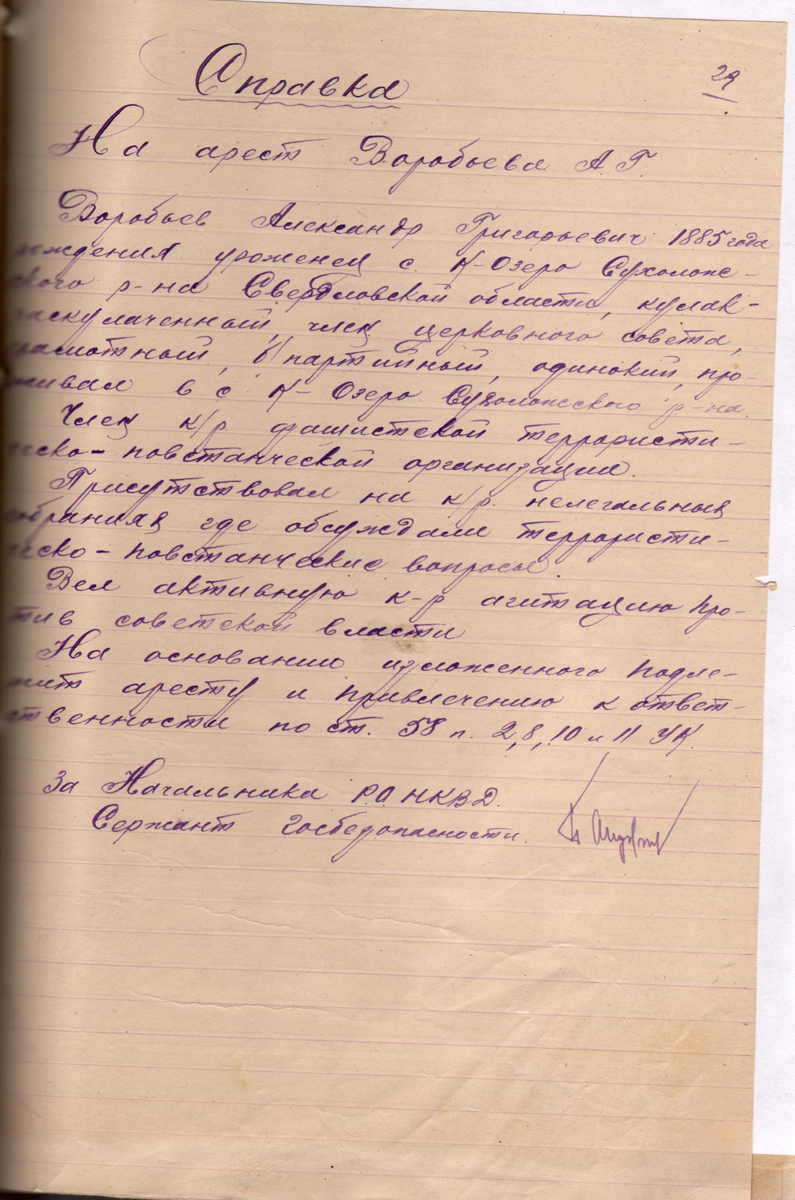 29
Справка
На арест Воробьева А.Г.
Воробьев Александр Григорьевич 1885 года
рождения уроженец с. К-Озеро Сухолож-
ского р-на Свердловской области, кулак-
раскулаченный, член церковного совета,
грамотный, б/партийный, одинокий, про-
живал в с К-Озеро Сухоложского р-на.
Член к/р фашистской террористи-
ческо-повстанческой организации.
Присутствовал на к/р. нелегальных
собраниях где обсуждали террористи-
ческо-повстанческие вопросы.
Вел активную к-р агитацию про-
тив советской власти
На основании изложенного подле-
жит аресту и привлечению к ответ-
ственности по ст. 58 п. 2,8,10 и 11 УК.
За Начальника Р.О НКВД.
Сержант Госбезопасности.